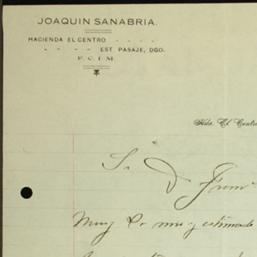 JOAQUIN SANABRIA.
HACIENDA EL CENTRO
EST PASAJE, DGO.
F. C. I. M.
Hda. El Centro
Sr. D
Muy Sr. mio y estimado